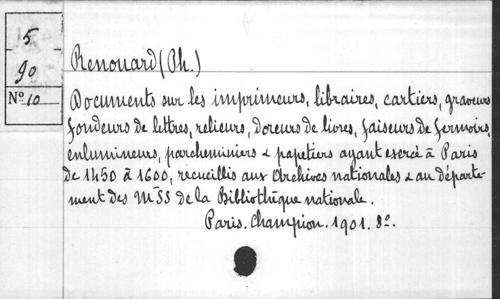 5
90
Nº 10
Renouard (Ph.)
Documents sur les imprimeurs, libraires, cartiers, graveurs
fondeurs de lettres, relieurs, doreurs de livres, faiseurs de fermoirs,
enlumineurs, parcheminiers & papetiers ayant exercé à Paris
de 1450 à 1600, recueillis aux Archives nationales & au départe-
ment des MSS de la Bibliothèque nationale.
Paris. Champion. 1901. 8º.